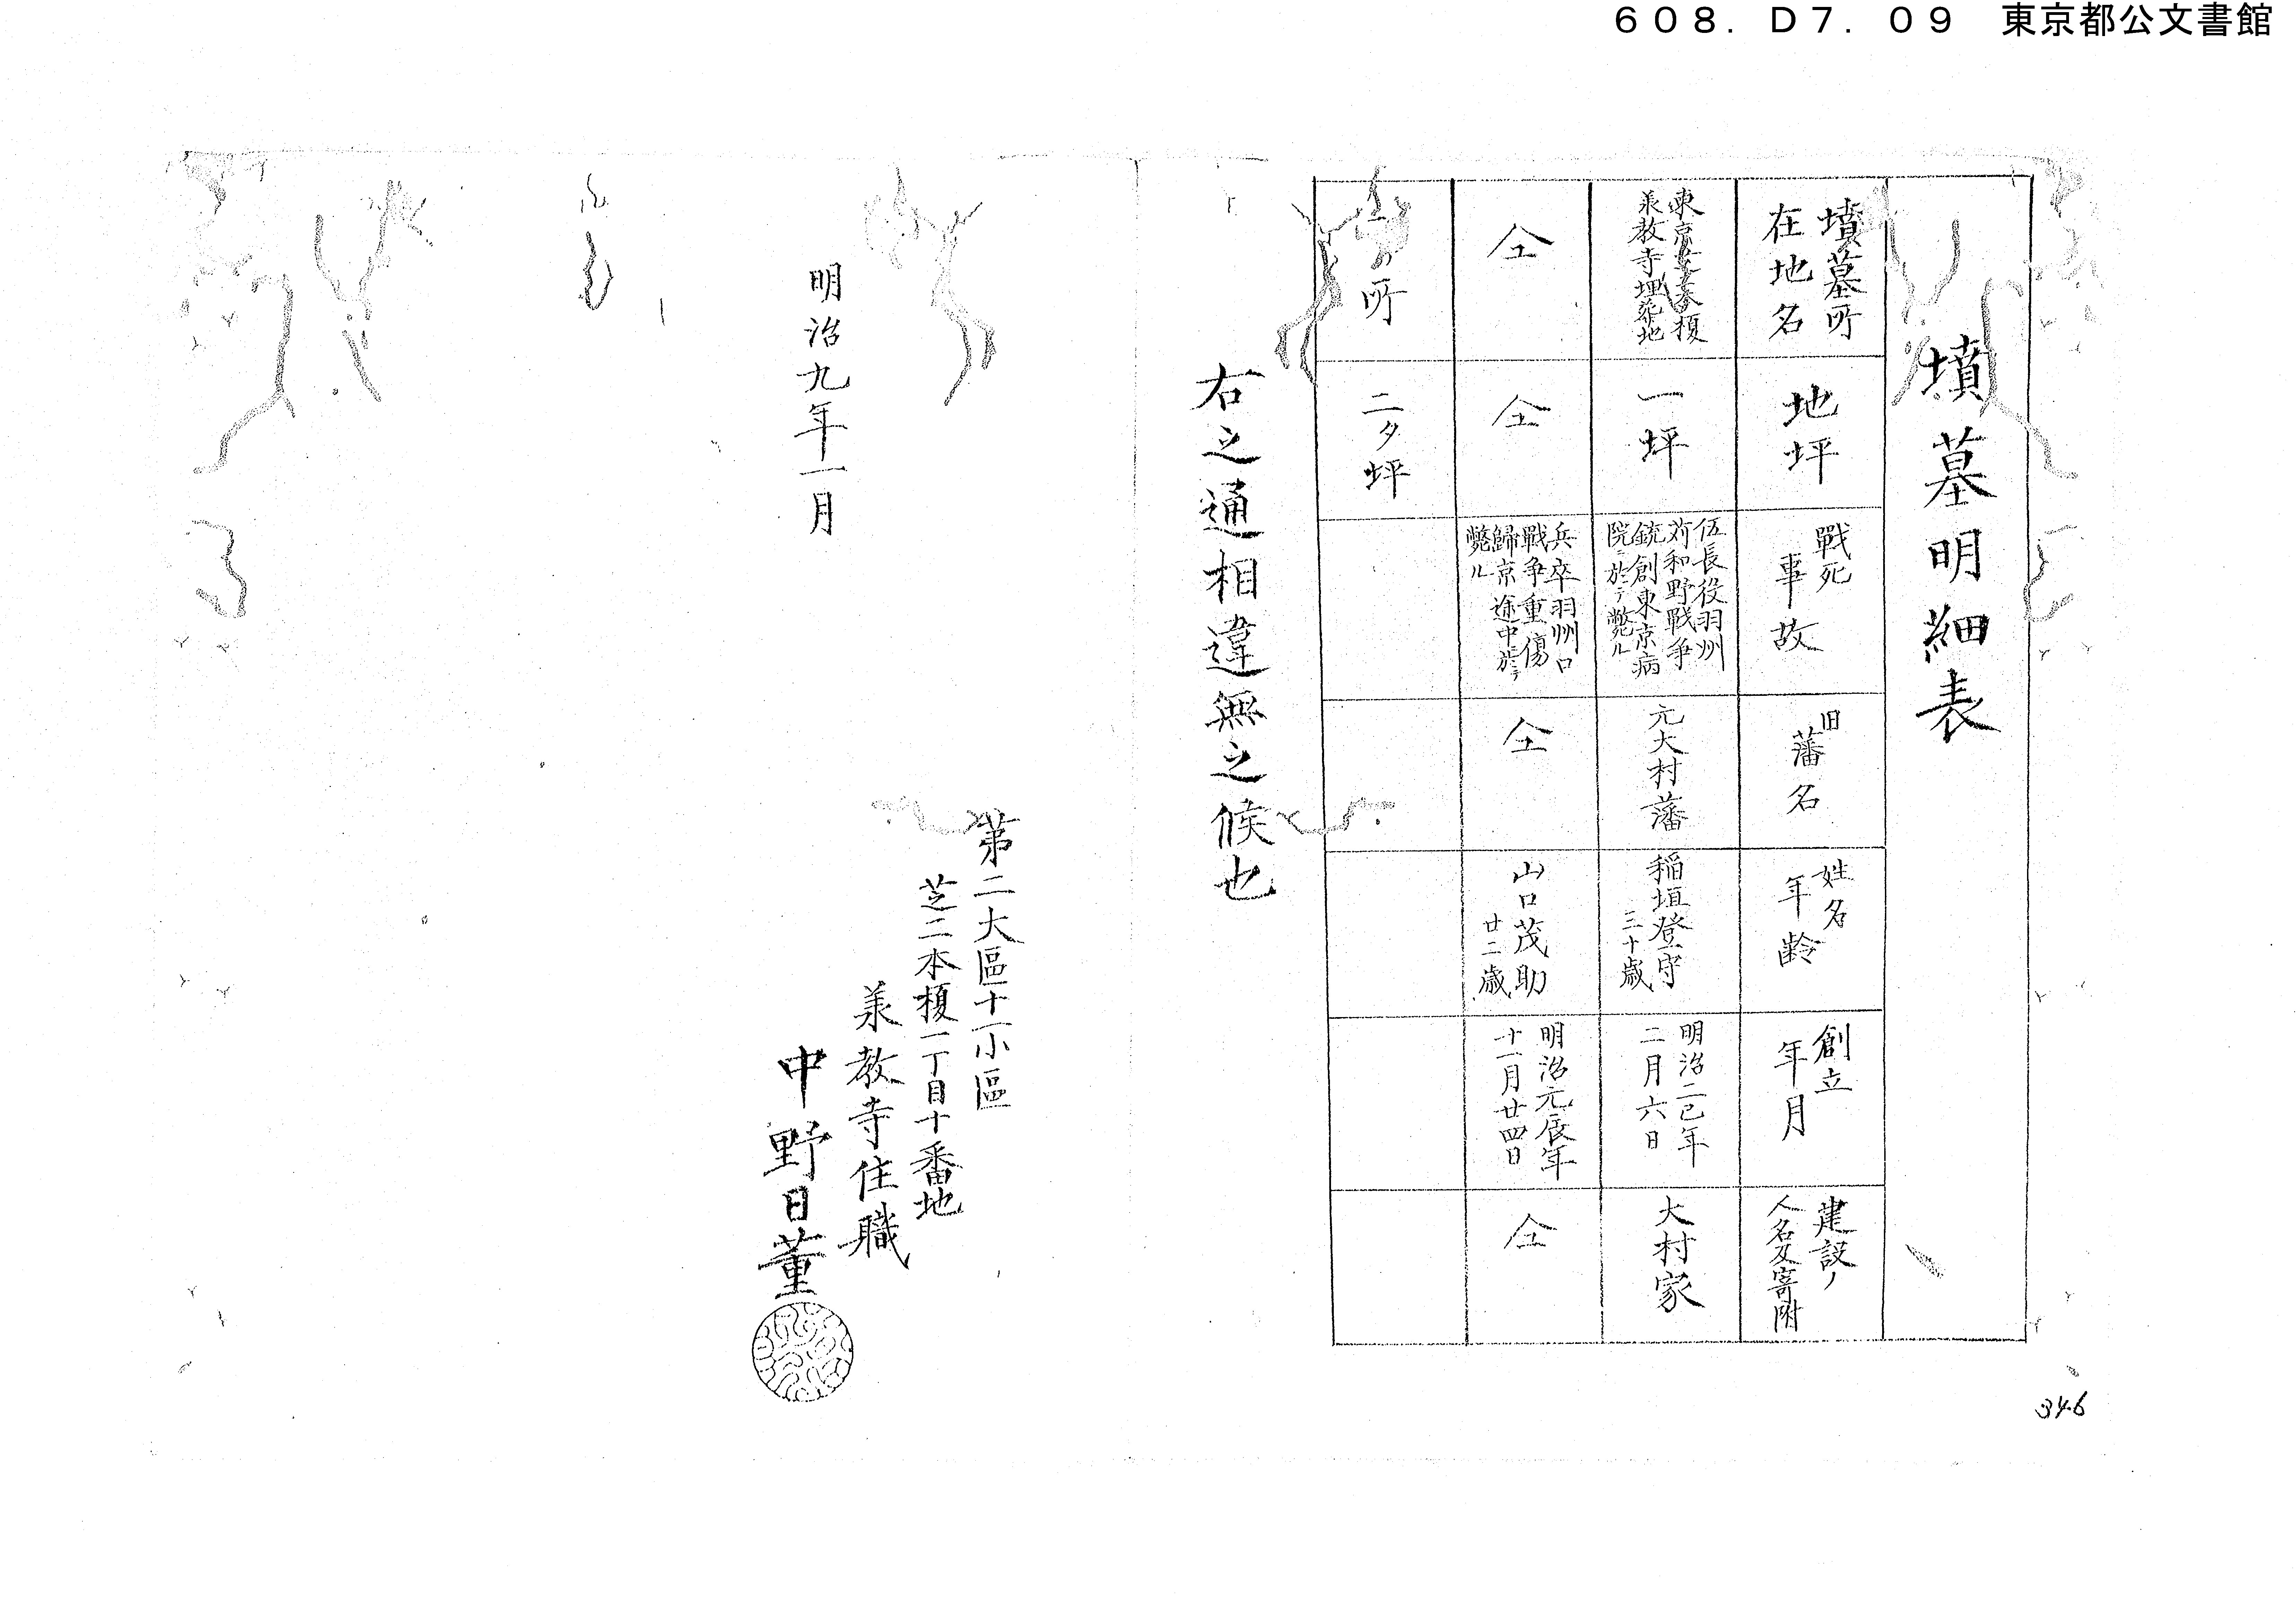 608.D7.09 東京都公文書館
墳墓明細表
墳墓所
在地名
地坪
戰死
事故
旧
藩名
姓名
年齢
創立
年月
建設ノ
人名及寄附
東京芝二本榎
承教寺埋葬地
一坪
伍長役羽州
苅和野戰争
銃創東京病
院ニ於テ斃ル
元大村藩
稲垣登守
三十歳
明治二巳年
二月六日
大村家
仝
仝
兵卒羽州口
戰争重傷
歸京途中於テ
斃ル
仝
山口茂助
廿二歳
明治元辰年
十一月廿四日
仝
所
二夕坪
右之通相違無之候也
明治九年一月
第二大區十一小區
芝二本榎一丁目十番地
承教寺住職
中野日董
346